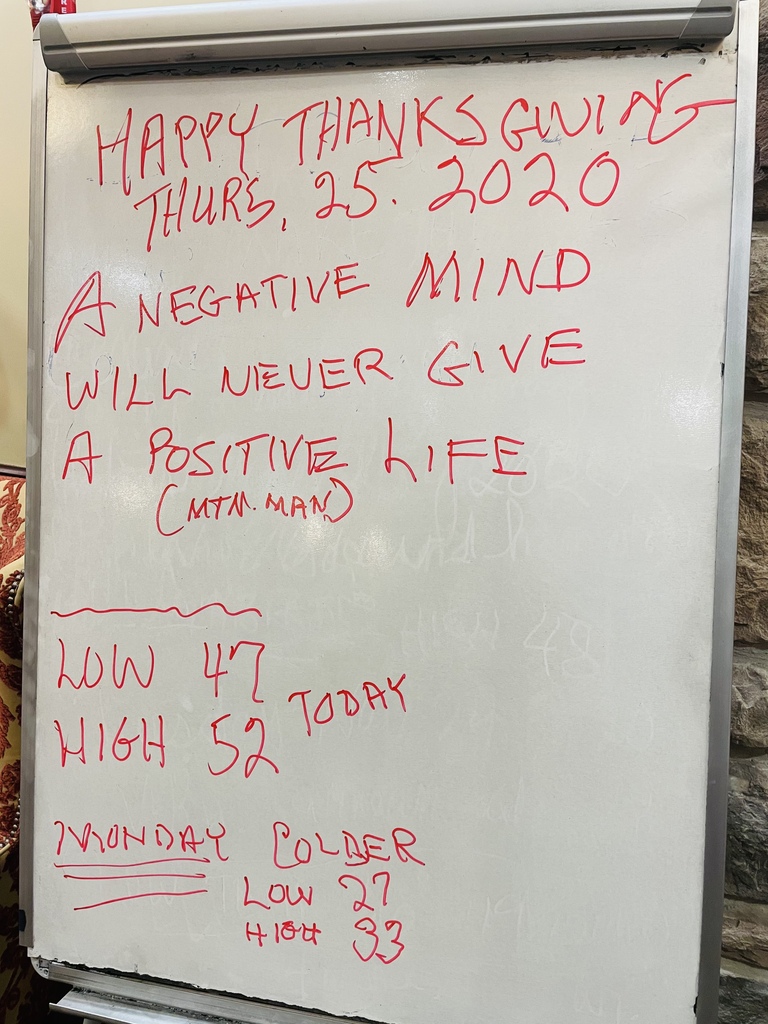 HAPPY THANKSGIVING
THURS, 25. 2020
A NEGATIVE MIND
WILL NEVER GIVE
A POSITIVE LIFE
(MTN. MAN)
LOW 47
TODAY
HIGH 52
MONDAY COLDER
LOW 27
HIGH 33